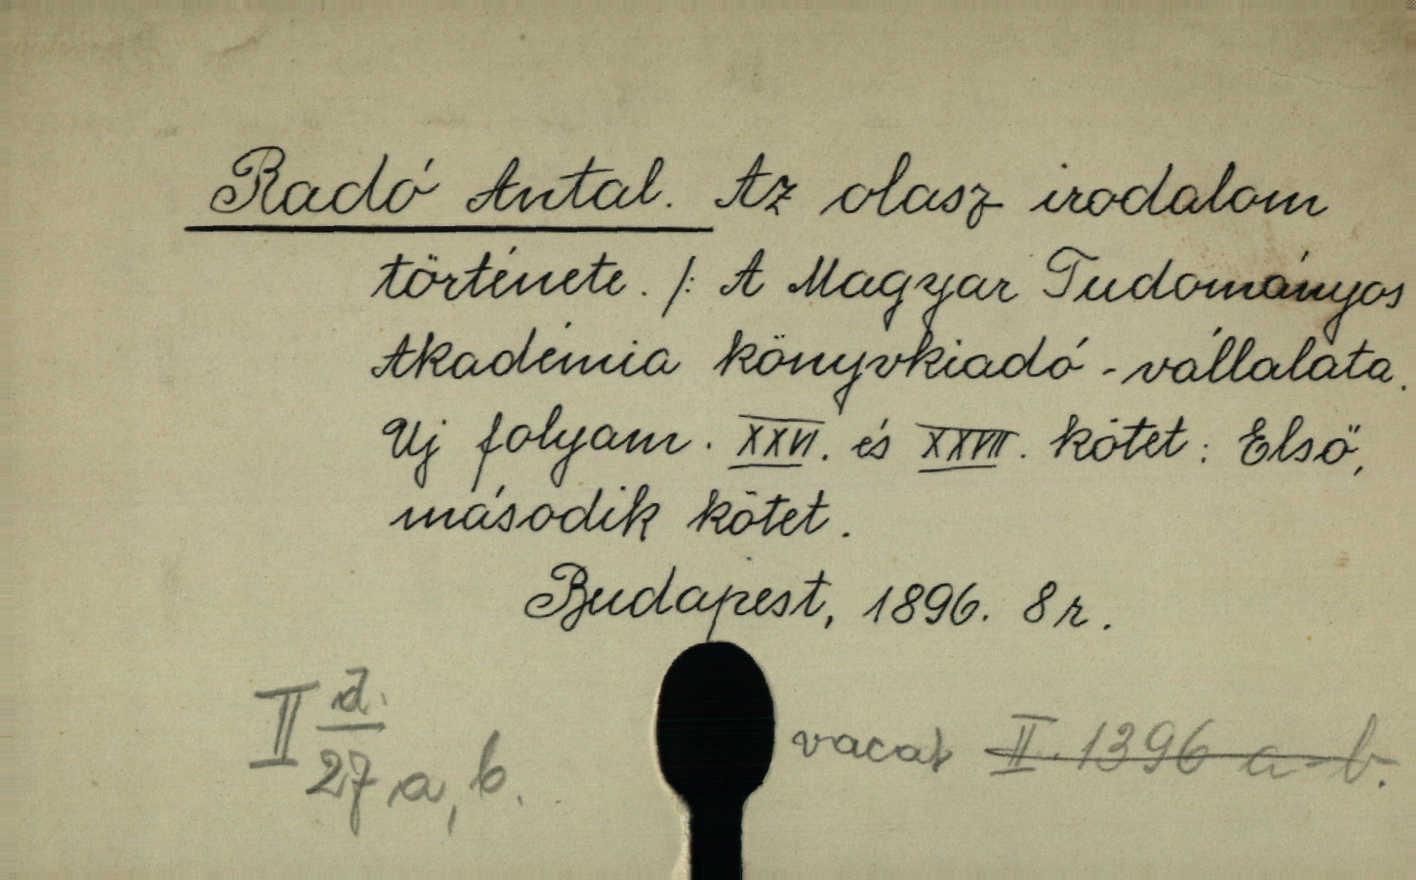 Radó Antal. Az olasz irodalom
története. /: A Magyar Tudományos
Akadémia könyvkiadó-vállalata.
Uj folyam. XXVI. és XXVII. kötet: Első,
második kötet.
Budapest, 1896. 8 r.
II d. / 27 a, b.
vacat II. 1396 a-b.